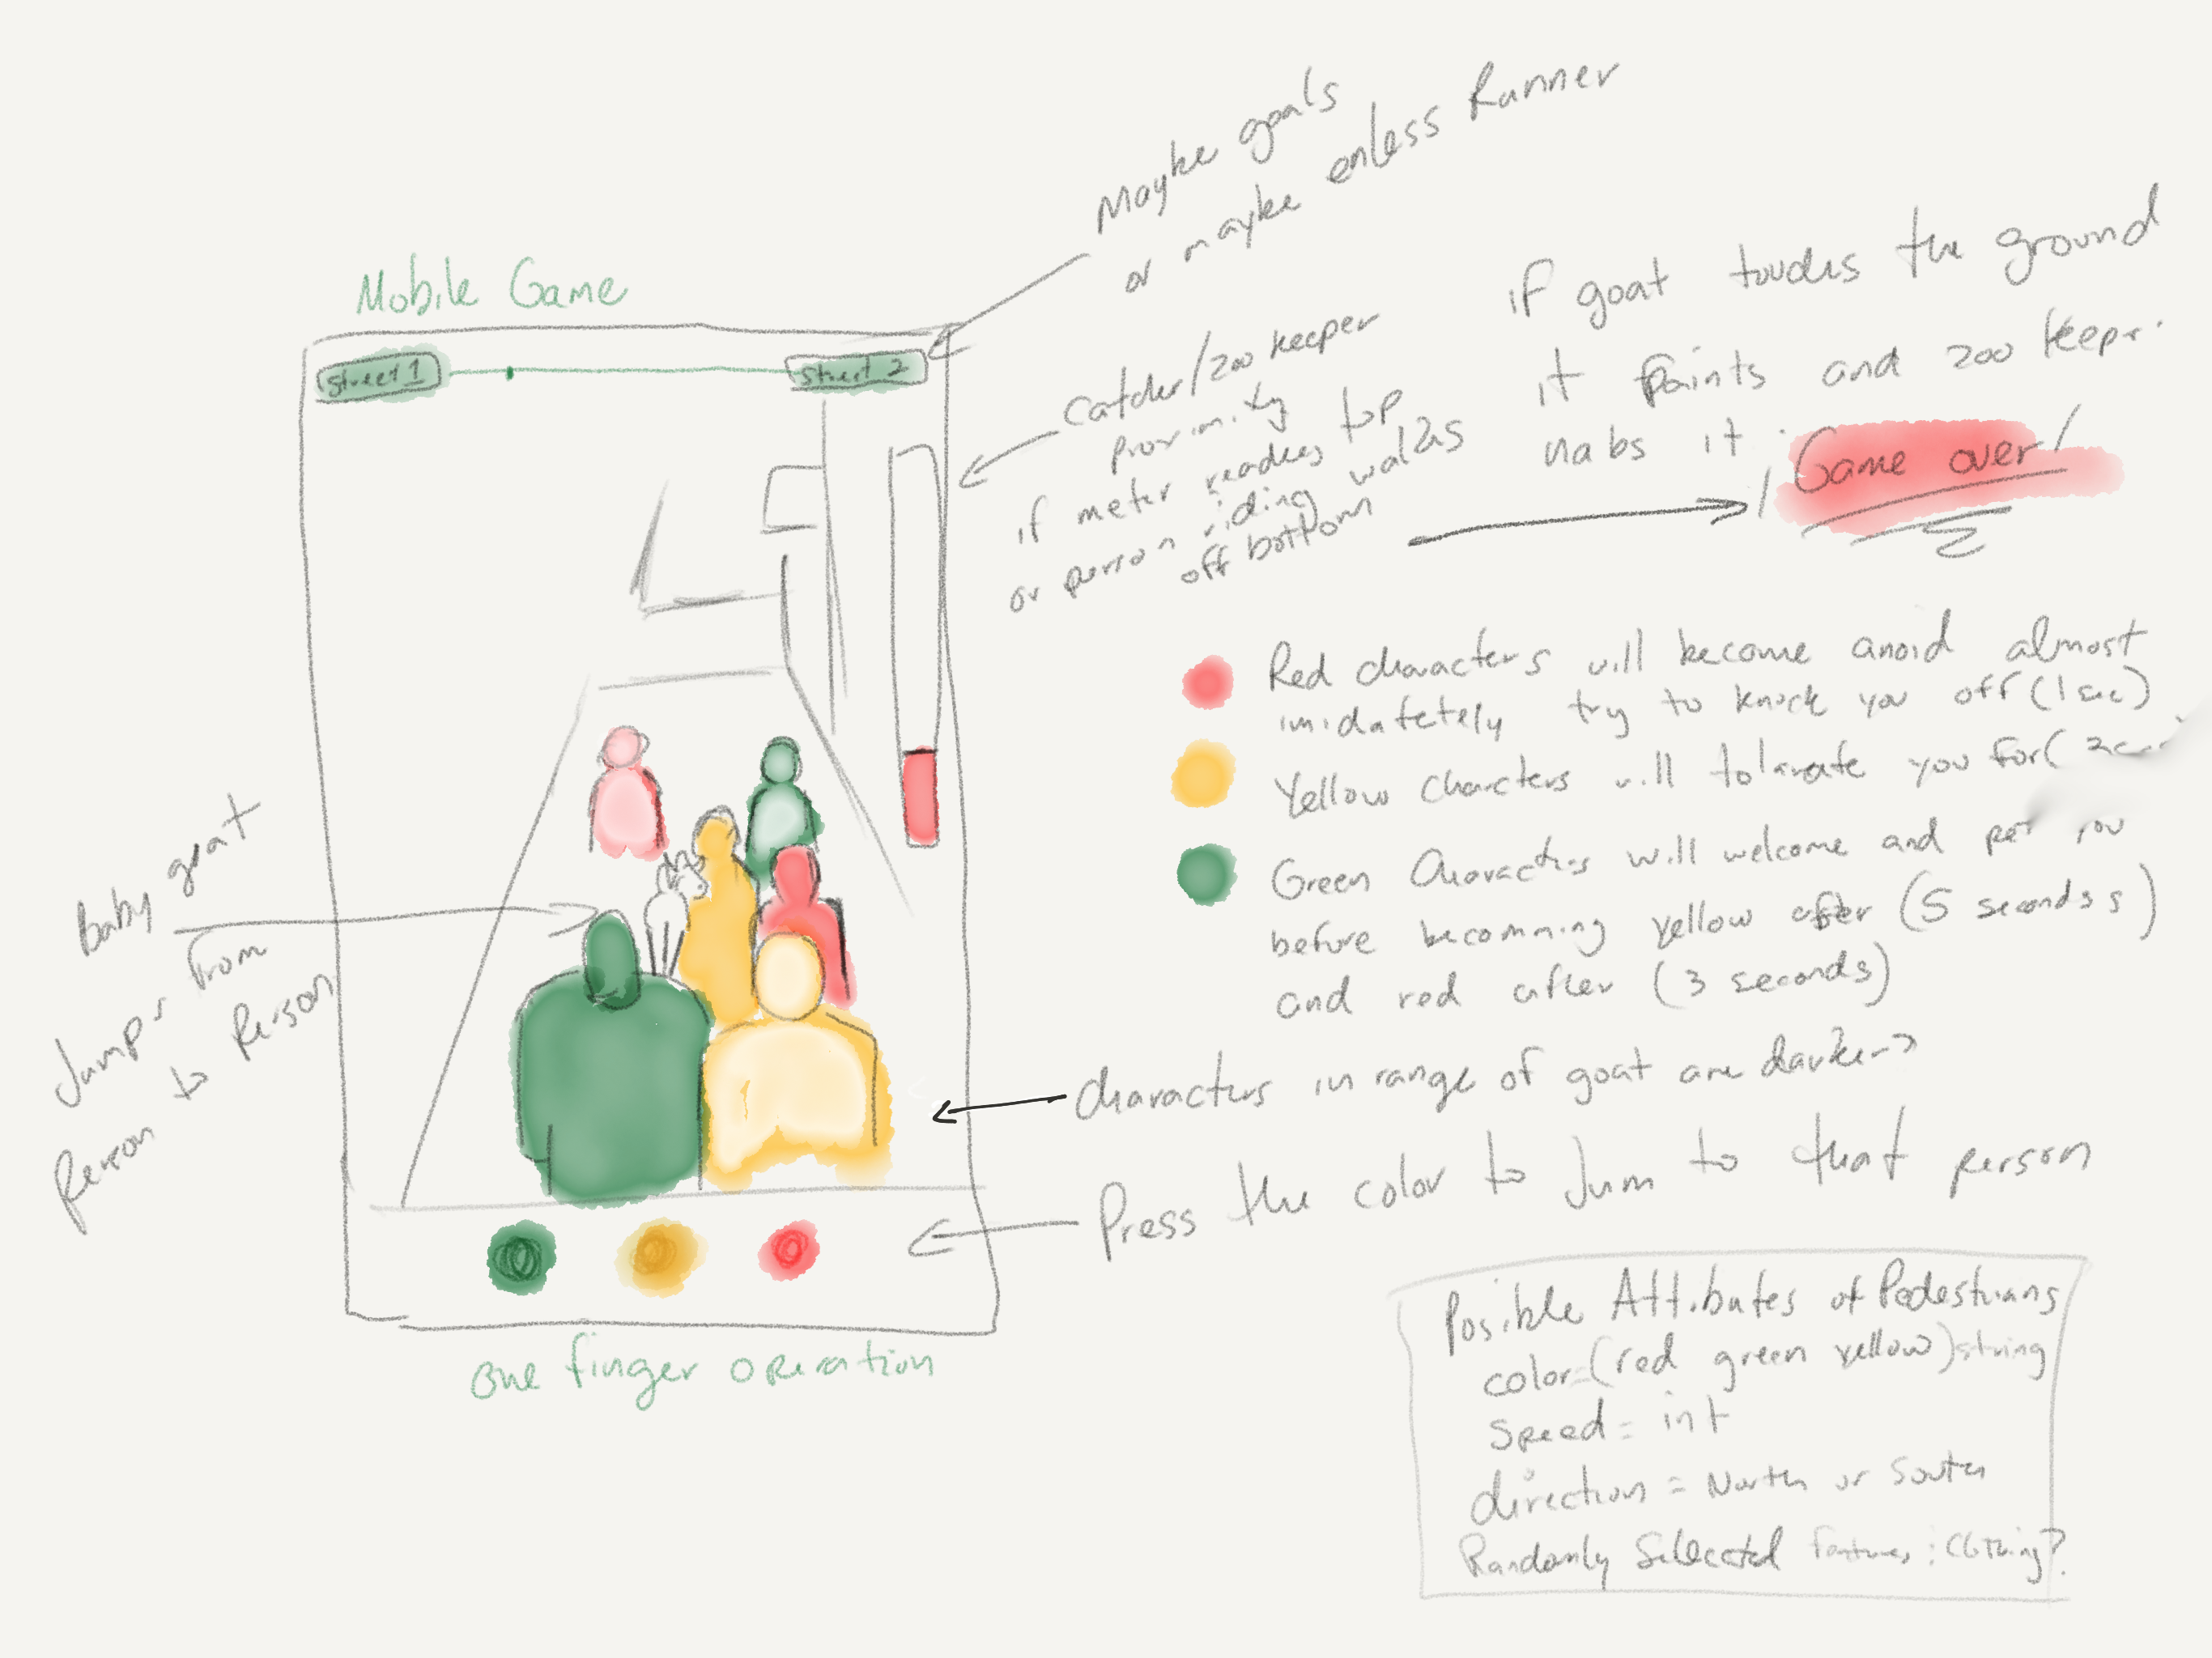 Mobile Game
street 1
street 2
Maybe goals
or maybe enless Runner
Catcher/zoo keeper
proximity
if meter reaches top
or person riding walks
off bottom
if goat touches the ground
it faints and zoo keeper
nabs it.
! Game over!
Red characters will become anoid almost
imidatetely try to knock you off (1 sec)
Yellow Charcters will tolarate you for (
Green Characters will welcome and pet you
before becomming yellow after (5 seconds)
and red after (3 seconds)
Baby goat
Jumps from
Person to Person
Characters in range of goat are darker
Press the color to Jum to that person
one finger operation
Posible Attributes of Pedestrians
color=(red green yellow)string
Speed = int
direction = North or South
Randomly Selected features : Clothing?